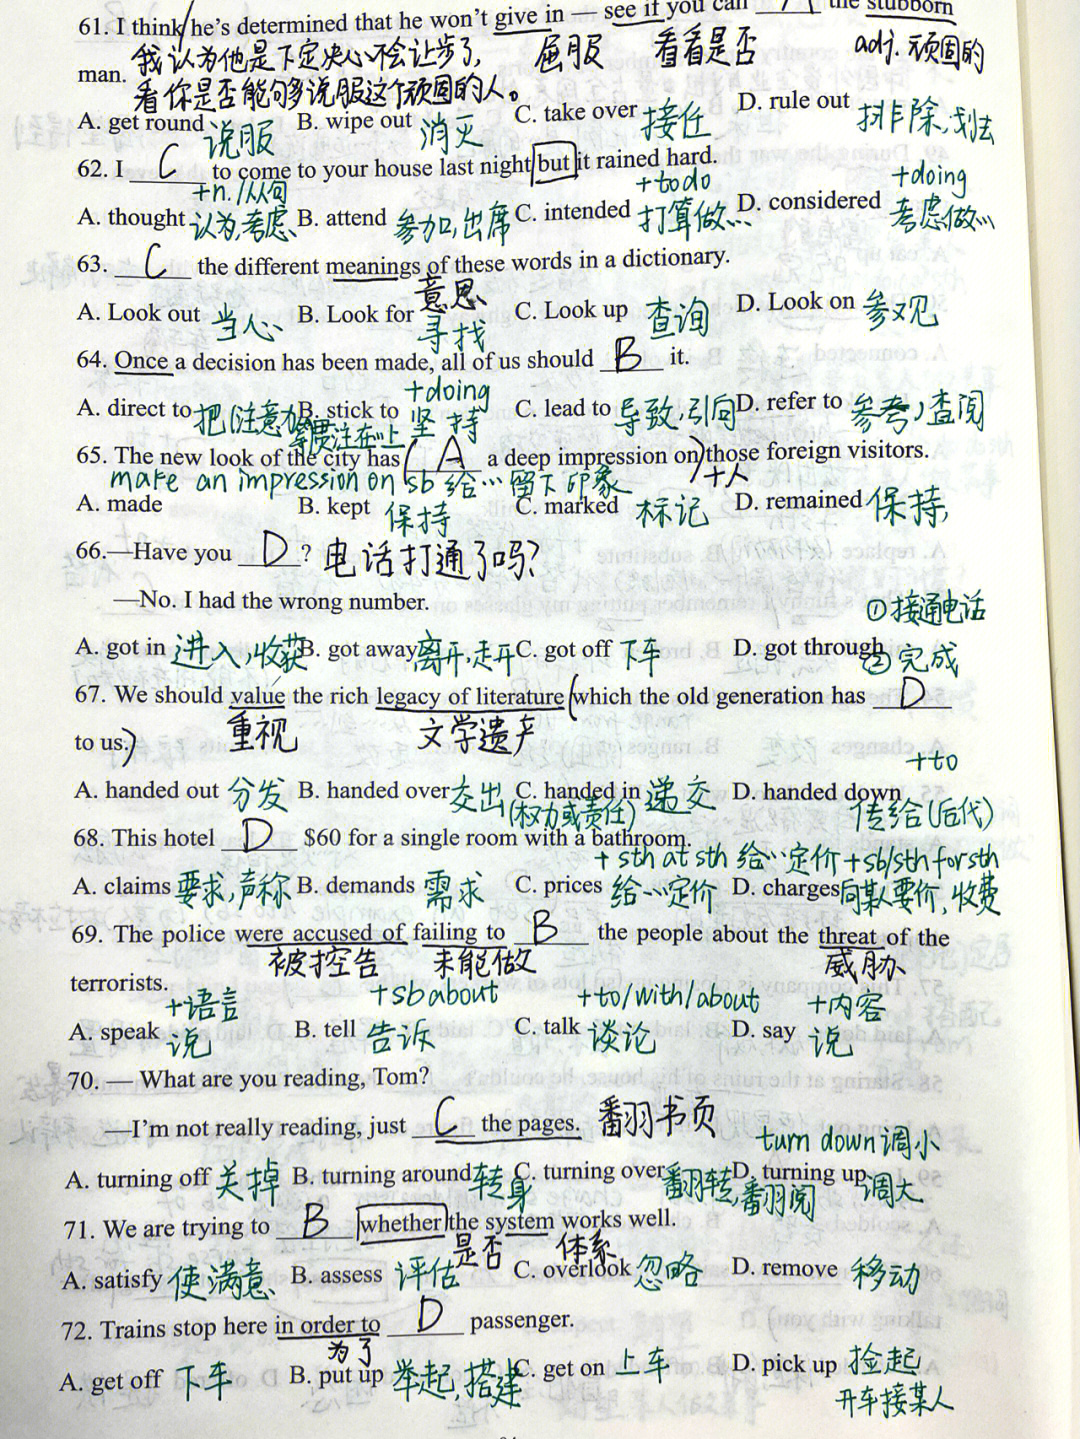 61. I think he's determined that he won't give in — see if you can ____ the stubborn
我认为他是下定决心不会让步了, 屈服 看看是否 adj. 顽固的
man. 看你是否能够说服这个顽固的人。
A. get round 说服 B. wipe out 消灭 C. take over 接任 D. rule out 排除,划去
62. I C to come to your house last night but it rained hard.
+n./从句 +to do +doing
A. thought 认为,考虑 B. attend 参加,出席 C. intended 打算做… D. considered 考虑做…
63. C the different meanings of these words in a dictionary.
意思
A. Look out 当心 B. Look for 寻找 C. Look up 查询 D. Look on 参观
64. Once a decision has been made, all of us should B it.
+doing
A. direct to 把(注意力 B. stick to 坚持 C. lead to 导致,引向 D. refer to 参考,查阅
等)贯注在…上
65. The new look of the city has (A a deep impression on) those foreign visitors.
make an impression on sb 给…留下印象 +人
A. made B. kept 保持 C. marked 标记 D. remained 保持,
66.—Have you D ? 电话打通了吗?
—No. I had the wrong number.
①接通电话
A. got in 进入,收获 B. got away 离开,走开 C. got off 下车 D. got through ②完成
67. We should value the rich legacy of literature (which the old generation has D
重视 文学遗产
to us.)
+to
A. handed out 分发 B. handed over 交出 C. handed in 递交 D. handed down
(权力或责任) 传给(后代)
68. This hotel D $60 for a single room with a bathroom.
+ sth at sth 给…定价 +sb/sth for sth
A. claims 要求,声称 B. demands 需求 C. prices 给…定价 D. charges 向某人要价,收费
69. The police were accused of failing to B the people about the threat of the
被控告 未能做 威胁
terrorists.
+语言 +sb about +to/with/about +内容
A. speak 说 B. tell 告诉 C. talk 谈论 D. say 说
70. — What are you reading, Tom?
—I'm not really reading, just C the pages. 翻书页
turn down 调小
A. turning off 关掉 B. turning around 转身 C. turning over 翻转,翻阅 D. turning up 调大
71. We are trying to B whether the system works well.
是否 体系
A. satisfy 使满意 B. assess 评估 C. overlook 忽略 D. remove 移动
72. Trains stop here in order to D passenger.
为了
A. get off 下车 B. put up 举起,搭建 C. get on 上车 D. pick up 捡起
开车接某人